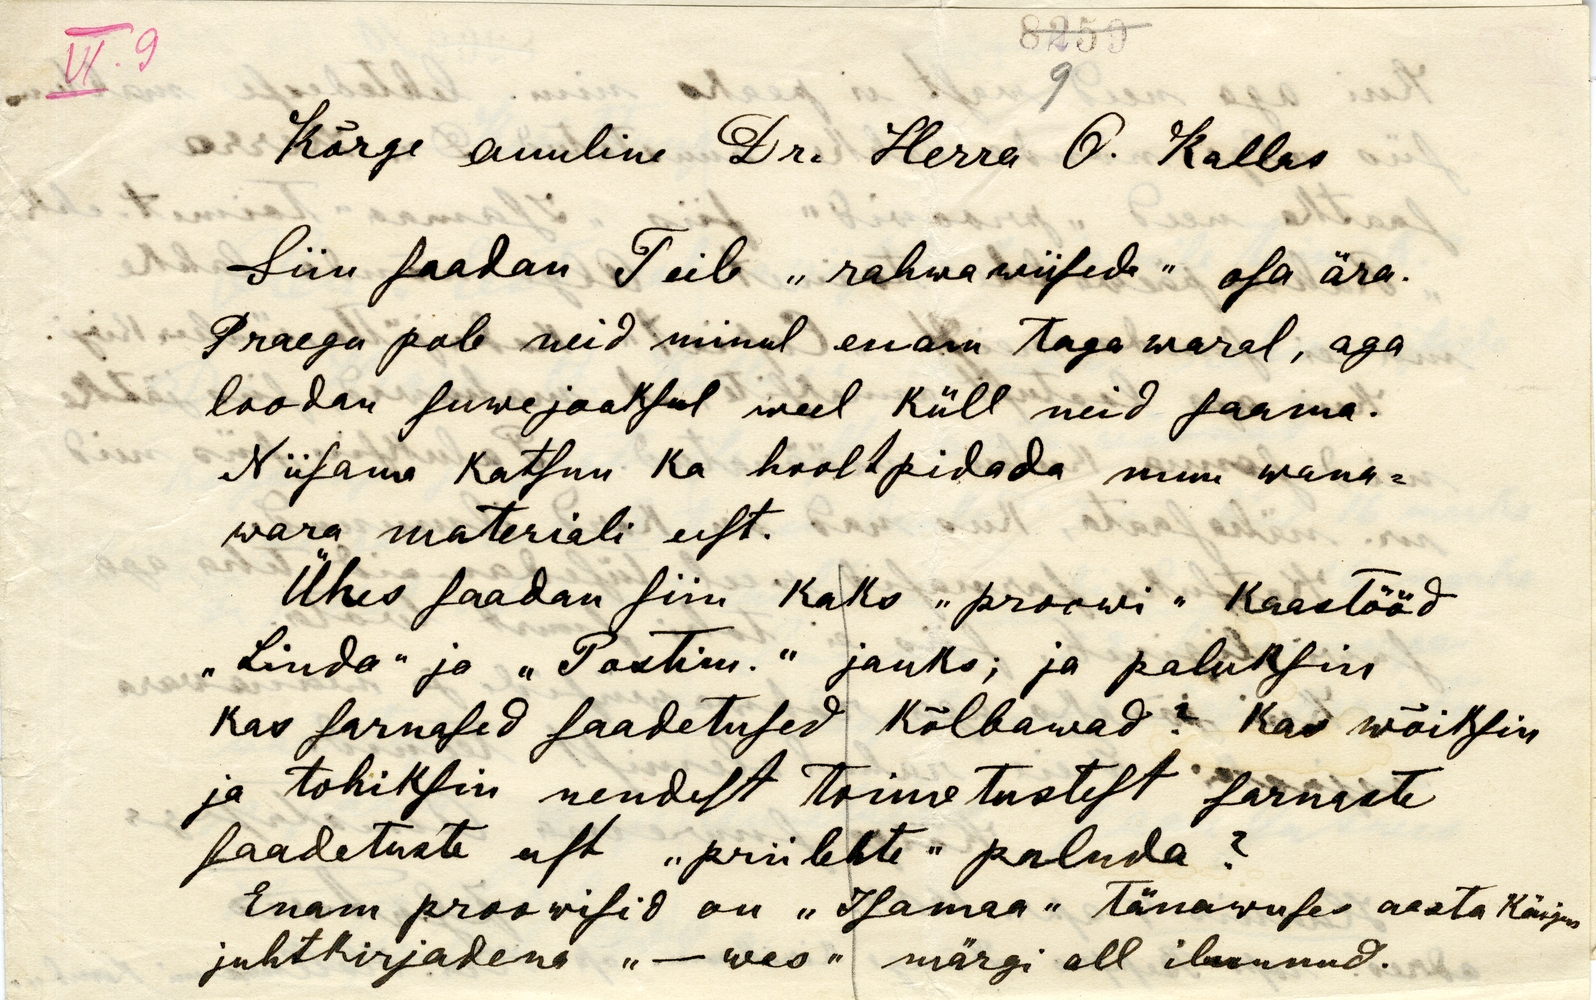 VI. 9
8259
9
Kõrge auuline Dr. Herra O. Kallas
Siin saadan Teile „rahwawiiside" osa ära.
Praegu pole neid minul enam tagawaral, aga
loodan suwejooksul weel küll neid saama.
Niisama katsun ka hooltpidada muu wana=
wara materiali eest.
Ühes saadan siin kaks „proowi" kaastööd
„Linda" ja „Postim." jauks; ja paluksin
kas sarnased saadetused kõlbawad? Kas wõiksin
ja tohiksin nendest toimetustest sarnaste
saadetuste eest „priilehte" paluda?
Enam proowisid on „Isamaa" tänawuses aasta käigus
juhtkirjadena „— wes" märgi all ilmunud.